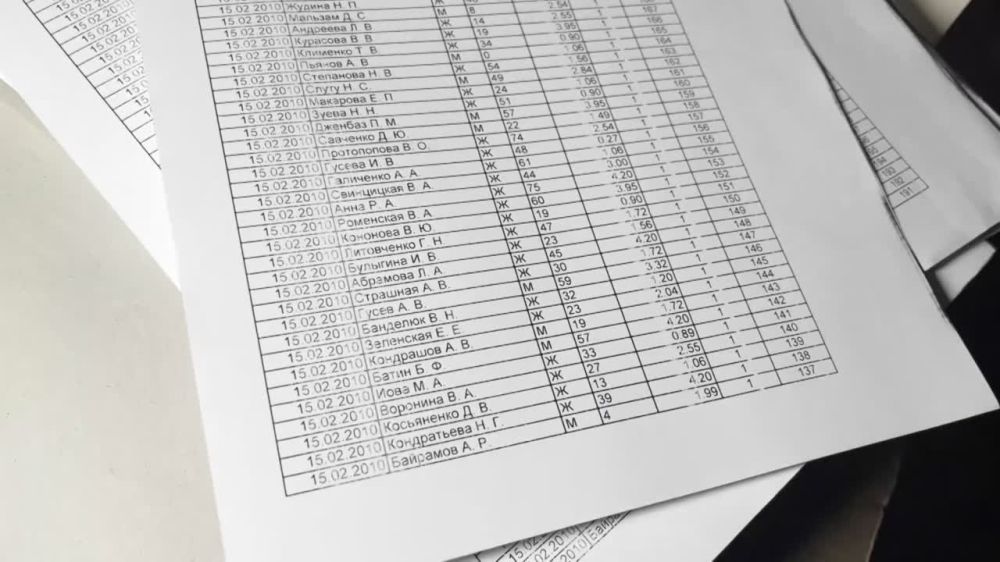 15.02.2010 Жудина Н. П Ж
15.02.2010 Мальзам Д. С М 8 2.54 1
15.02.2010 Андреева Л. В Ж 14 2.55 1 167
15.02.2010 Курасова В. В Ж 19 3.95 1 166
15.02.2010 Клименко Т. В Ж 34 0.90 1 165
15.02.2010 Пьянов А. В М 0 1.06 1 164
15.02.2010 Степанова Н. В Ж 54 1.56 1 163
15.02.2010 Слугу Н. С. М 49 2.84 1 162
15.02.2010 Макарова Е. П Ж 24 1.06 1 161
15.02.2010 Зуева Н. Н Ж 51 0.90 1 160
15.02.2010 Дженбаз П. М М 57 3.95 1 159
15.02.2010 Савченко Д. Ю. М 22 1.49 1 158
15.02.2010 Протопопова В. О. Ж 74 2.54 1 157
15.02.2010 Гусева И. В Ж 48 0.27 1 156
15.02.2010 Галиченко А. А. Ж 61 1.06 1 155
15.02.2010 Свинцицкая В. А. Ж 44 3.00 1 154
15.02.2010 Анна Р. А. Ж 75 4.20 1 153
15.02.2010 Роменская В. А. Ж 60 3.95 1 152
15.02.2010 Кононова В. Ю. Ж 19 0.90 1 151
15.02.2010 Литовченко Г. Н. Ж 47 1.72 1 150
15.02.2010 Булыгина И. В. Ж 23 1.56 1 149
15.02.2010 Абрамова Л. А. Ж 45 4.20 1 148
15.02.2010 Страшная А. В. Ж 30 1.72 1 147
15.02.2010 Гусев А. В. М 59 3.32 1 146
15.02.2010 Банделюк В. Н. Ж 32 1.20 1 145
15.02.2010 Зеленская Е. Е. Ж 23 2.04 1 144
15.02.2010 Кондрашов А. В. М 19 1.72 1 143
15.02.2010 Батин Б. Ф. М 57 4.20 1 142
15.02.2010 Иова М. А. Ж 33 0.89 1 141
15.02.2010 Воронина В. А. Ж 27 2.55 1 140
15.02.2010 Косьяненко Д. В. Ж 13 1.06 1 139
15.02.2010 Кондратьева Н. Г. Ж 39 4.20 1 138
15.02.2010 Байрамов А. Р. М 4 1.99 1 137
193
192
191
15.02.2010
15.02.2010
15.02.2010